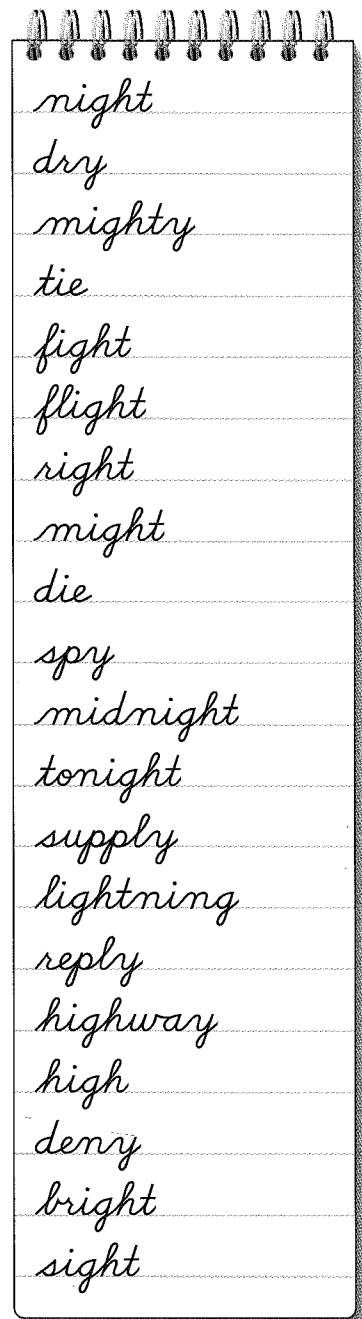 night
dry
mighty
tie
fight
flight
right
might
die
spy
midnight
tonight
supply
lightning
reply
highway
high
deny
bright
sight